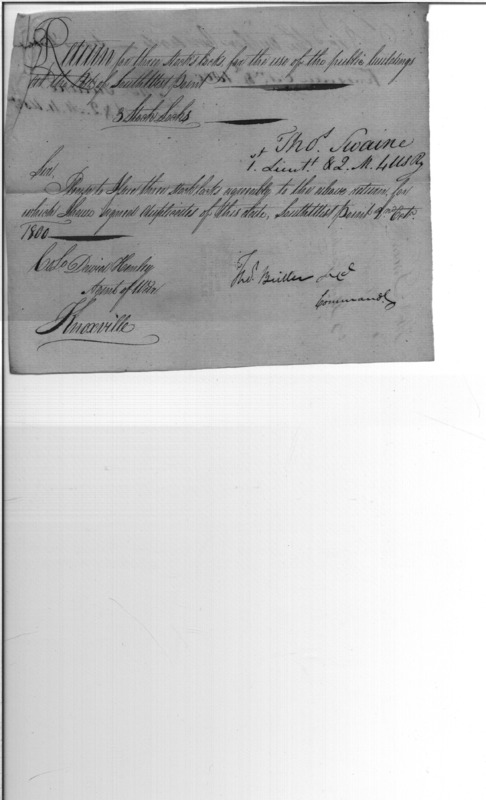 Return for three stock locks for the use of the public buildings
of South West Point
3 Stock Locks
Thos. Swaine
1. Lieut. & Q. M. 4 US R
Sir.
Please to three stock locks agreeably to the above return, for
which I have signed duplicates of this date, South West Point Octr.
1800
Colo. David Henley
Agent of War
Knoxville
Thos. Butler
Command